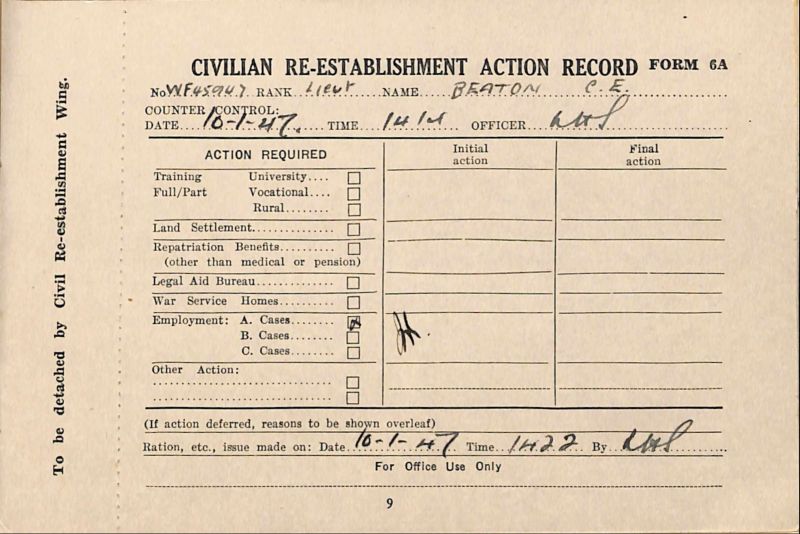 CIVILIAN RE-ESTABLISHMENT ACTION RECORD FORM 6A
No. WF45947 RANK Lieut NAME BEATON C.E.
COUNTER CONTROL:
DATE 10-1-47. TIME OFFICER
ACTION REQUIRED
Initial action
Final action
Training University....
Full/Part Vocational....
Rural........
Land Settlement..............
Repatriation Benefits..........
(other than medical or pension)
Legal Aid Bureau.............
War Service Homes..........
Employment: A. Cases........
B. Cases........
C. Cases........
Other Action:
(If action deferred, reasons to be shown overleaf)
Ration, etc., issue made on: Date 10-1-47 Time 1422 By
For Office Use Only
9
To be detached by Civil Re-establishment Wing.